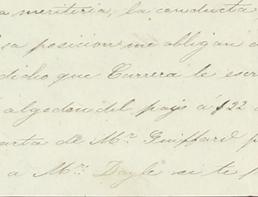 a meritoria, la conducta
sa posicion me obligan a
dicho que Currera le escr
algodon del pays á $22 a
arta de Mr. Guiffard p
a Mr. Dayle si te p